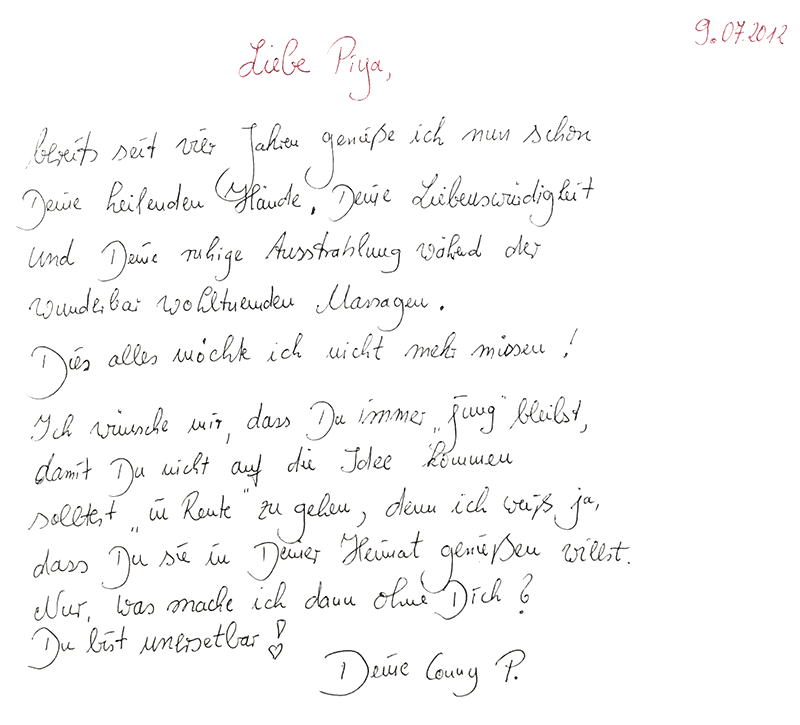 9.07.2012
Liebe Piya,
bereits seit vier Jahren genieße ich nun schon
Deine heilenden Hände, Deine Liebenswürdigkeit
und Deine ruhige Ausstrahlung währd der
wunderbar wohltuenden Massagen.
Dies alles möchte ich nicht mehr missen!
Ich wünsche mir, dass Du immer „jung" bleibst,
damit Du nicht auf die Idee kommen
solltest „in Rente" zu gehen, denn ich weiß ja,
dass Du sie in Deiner Heimat genießen willst.
Nur, was mache ich dann ohne Dich?
Du bist unersetbar!
Deine Conny P.